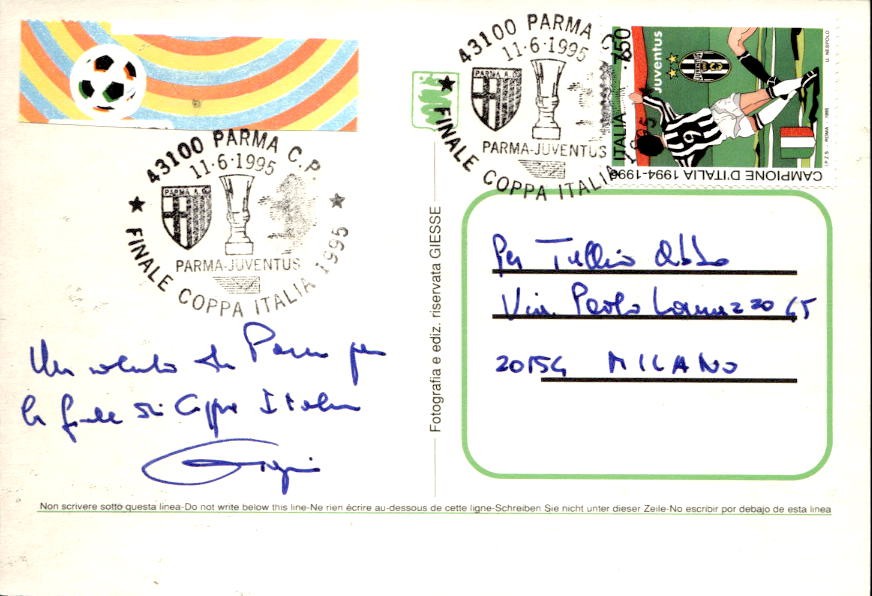 43100 PARMA C.P.
11·6·1995
PARMA A.C.
PARMA-JUVENTUS
★ FINALE COPPA ITALIA 1995 ★
43100 PARMA C.P.
11·6·1995
PARMA A.C.
PARMA-JUVENTUS
★ FINALE COPPA ITALIA 1995
ITALIA 750
Juventus
CAMPIONE D'ITALIA 1994-1995
I.P.Z.S. - ROMA - 1995
U. NESPOLO
6
Un saluto da Parma per
la finale di Coppa Italia
Fotografia e ediz. riservata GIESSE
Per Tullio
Via Paolo Lomazzo 65
20154 MILANO
Non scrivere sotto questa linea-Do not write below this line-Ne rien écrire au-dessous de cette ligne-Schreiben Sie nicht unter dieser Zeile-No escribir por debajo de esta linea